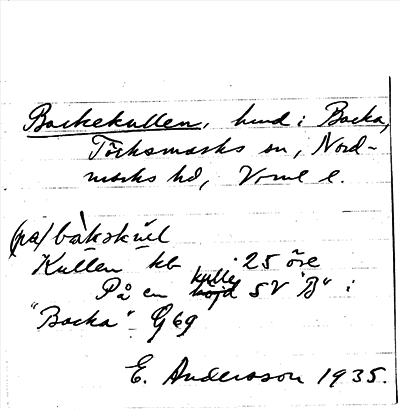 Backekullen, hmd i Backa,
Töcksmarks sn, Nord-
marks hd, Vrml l.
(pa) bàkǝkúɫ
Kullen kb i 25 öre
På en kulle SV "B" i
"Backa" G 69
E. Andersson 1935.